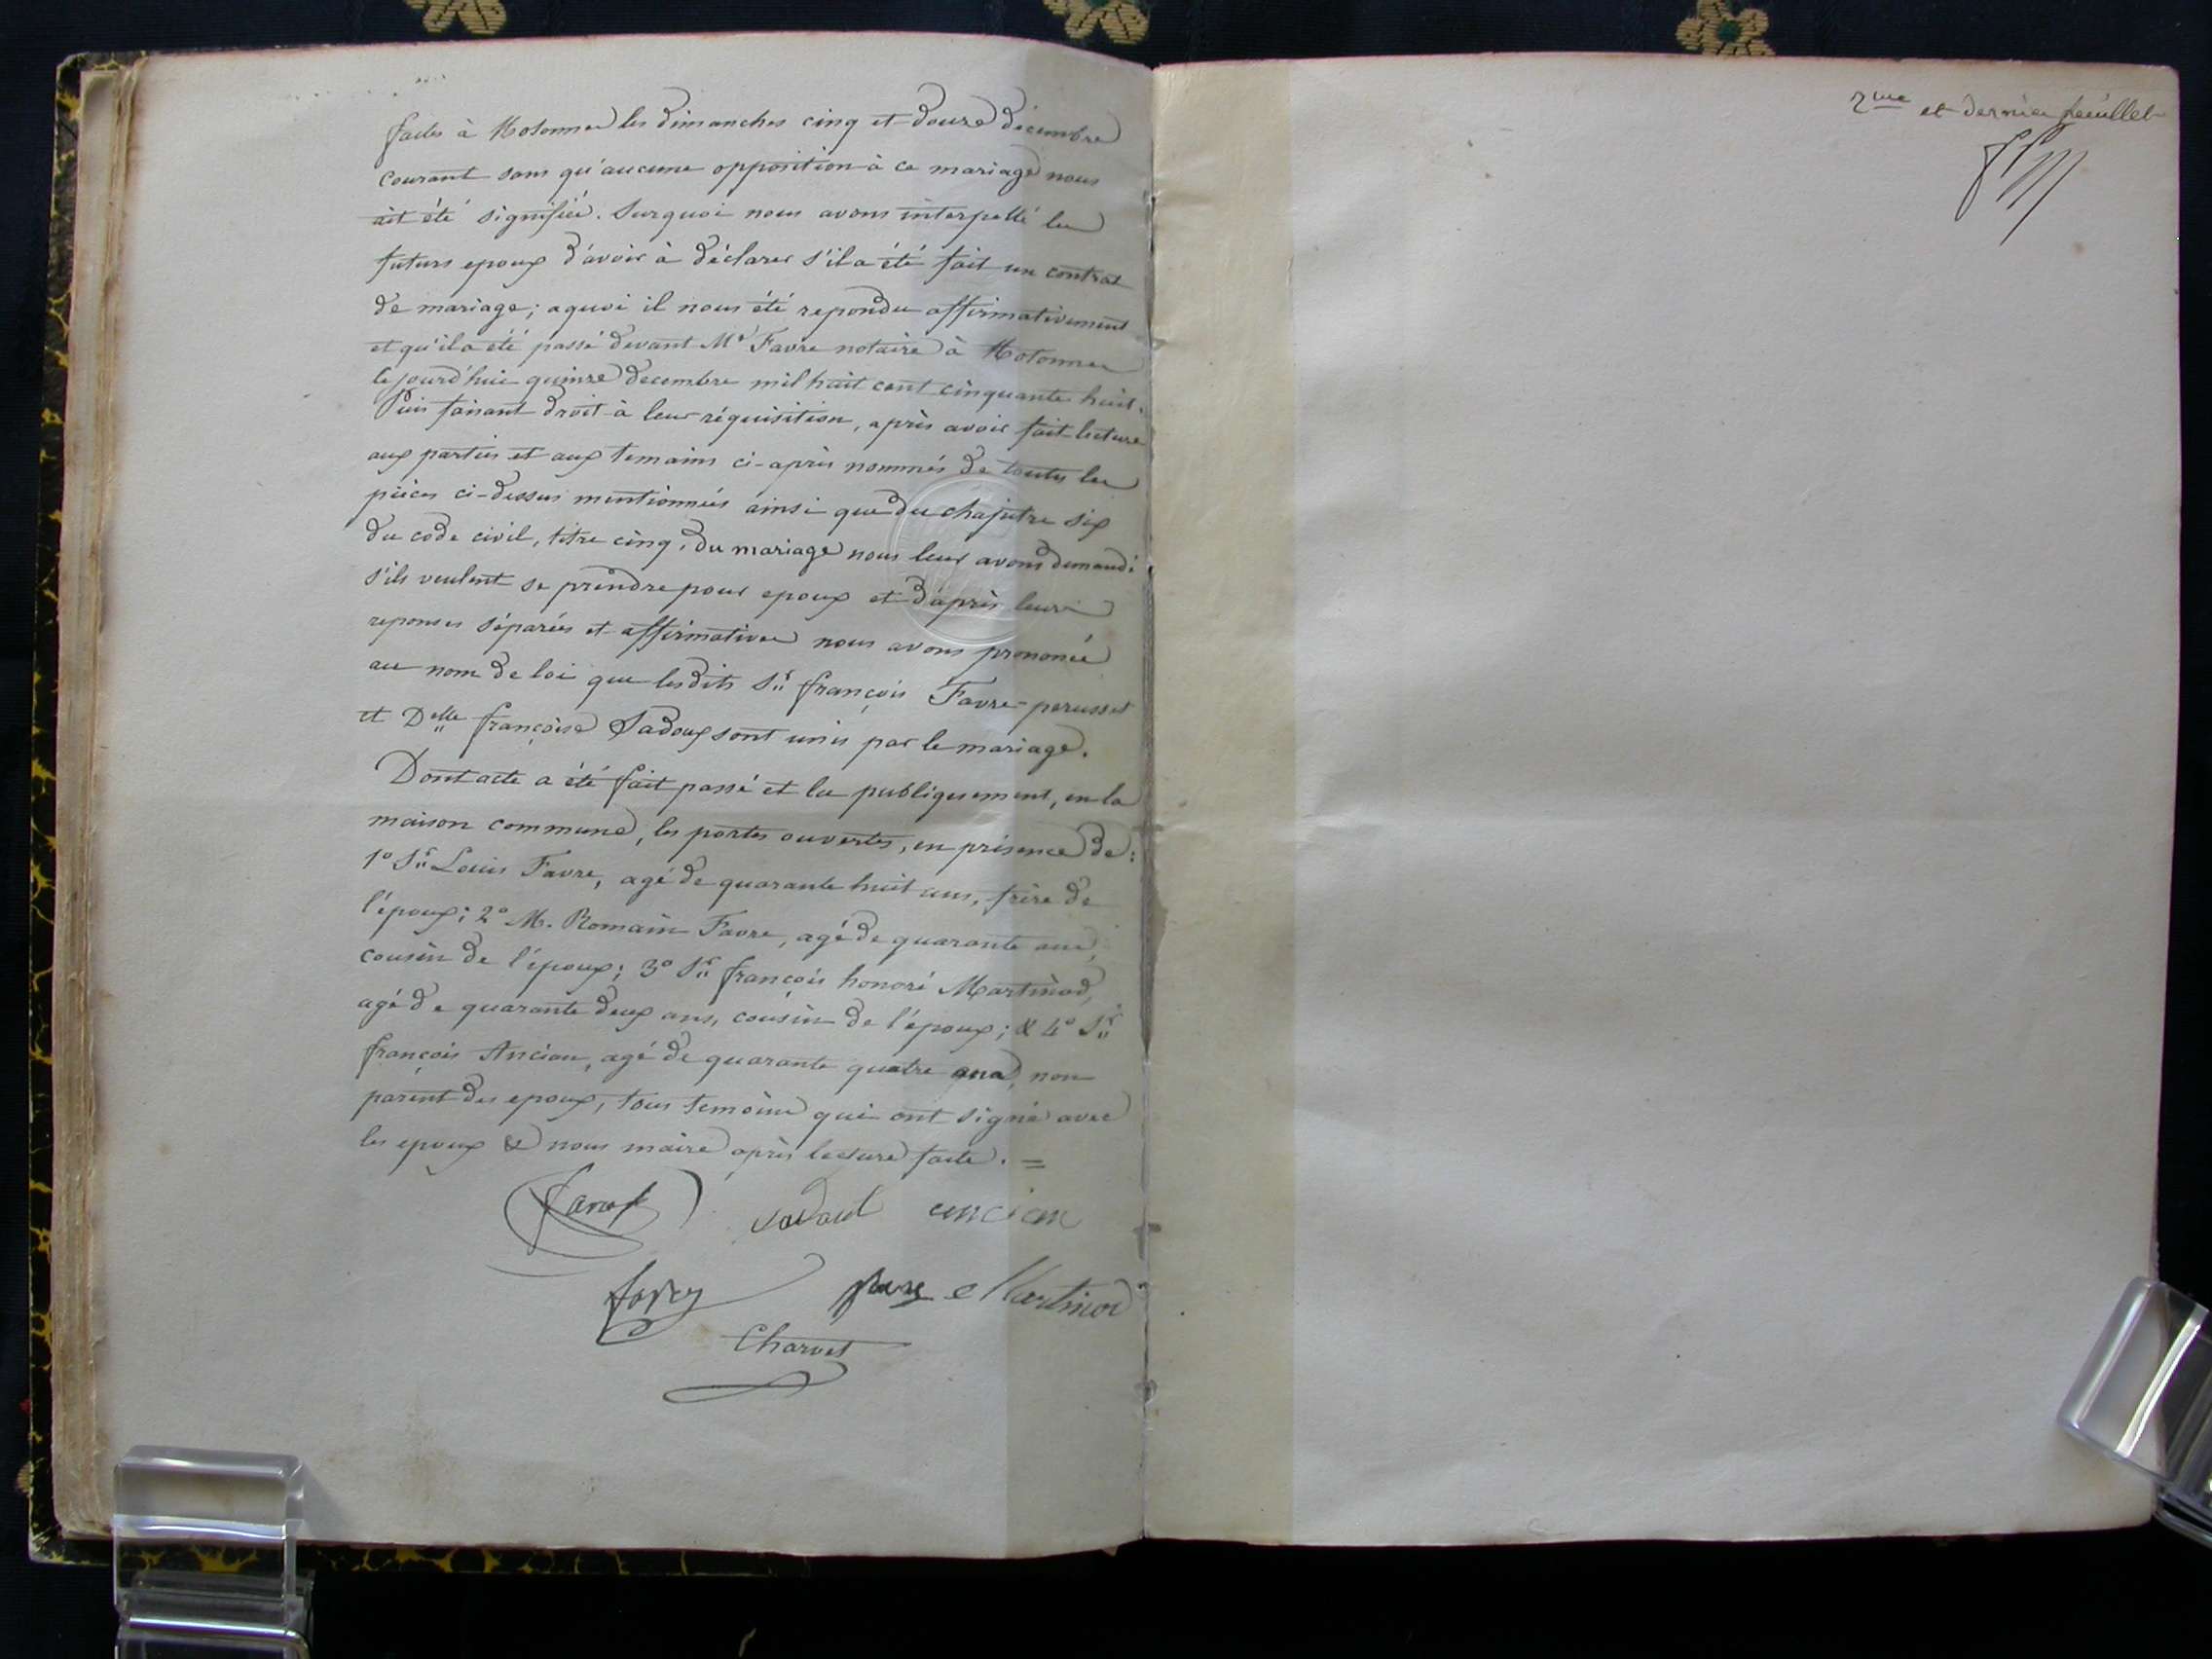 faites à Hotonnes les dimanches cinq et douze décembre
courant sans qu'aucune opposition à ce mariage nous
ait été signifiée. Surquoi nous avons interpellé les
futurs epoux d'avoir à déclarer s'il a été fait un contrat
de mariage; aquoi il nous été repondu affirmativement
et qu'il a été passé devant Me Favre notaire à Hotonnes
cejourd'hui quinze decembre mil huit cent cinquante huit.
Puis faisant droit à leur réquisition, après avoir fait lecture
aux parties et aux temoins ci-après nommés de toutes les
pièces ci-dessus mentionnées ainsi que du chapitre six
du code civil, titre cinq, du mariage nous leur avons demandé
s'ils veulent se prendre pour epoux et d'après leurs
reponses séparées et affirmatives nous avons prononcé
au nom de loi que lesdits Sr. françois Favre-perusset
et Delle françoise Sadoux sont unis par le mariage.
Dont acte a été fait passé et lu publiquement, en la
maison commune, les portes ouvertes, en présence de:
1° Sr. Louis Favre, agé de quarante huit ans, frère de
l'époux; 2° M. Romain Favre, agé de quarante ans,
cousin de l'époux; 3° Sr. françois honoré Martinod,
agé de quarante deux ans, cousin de l'époux; & 4° Sr.
françois Ancian, agé de quarante quatre ans, non
parent des epoux, tous temoins qui ont signé avec
les epoux & nous maire après lecture faite. =
ancian
Martinod
Charvet
2me et dernier feuillet